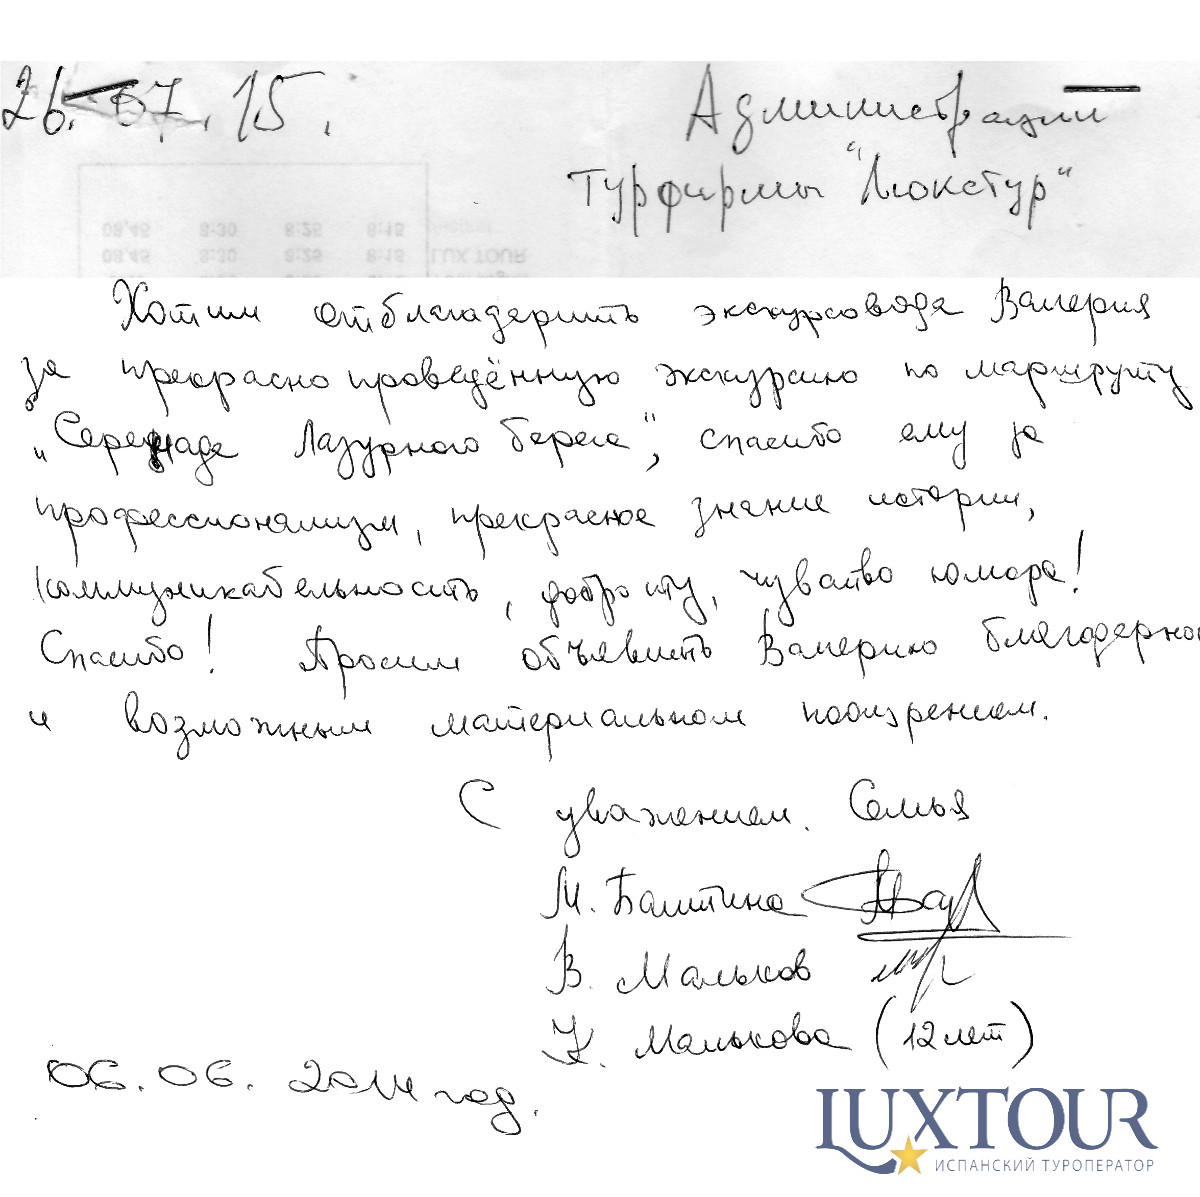 26.07.15.
Администрации
турфирмы "Люкстур"
08,45 8:30 8:25 8:15
08,45 8:30 8:25 8:15 LUX TOUR
Хотим отблагодарить экскурсовода Валерия
за прекрасно проведённую экскурсию по маршруту
„Серенада Лазурного берега", спасибо ему за
профессионализм, прекрасное знание истории,
коммуникабельность, доброту, чувство юмора!
Спасибо! Просим объявить Валерию благодарнос
и возможным материальном поощрением.
С уважением. Семья
М. Баштина
В. Мальков
К. Малькова (12 лет)
06.06. 2014 год.
LUXTOUR
ИСПАНСКИЙ ТУРОПЕРАТОР